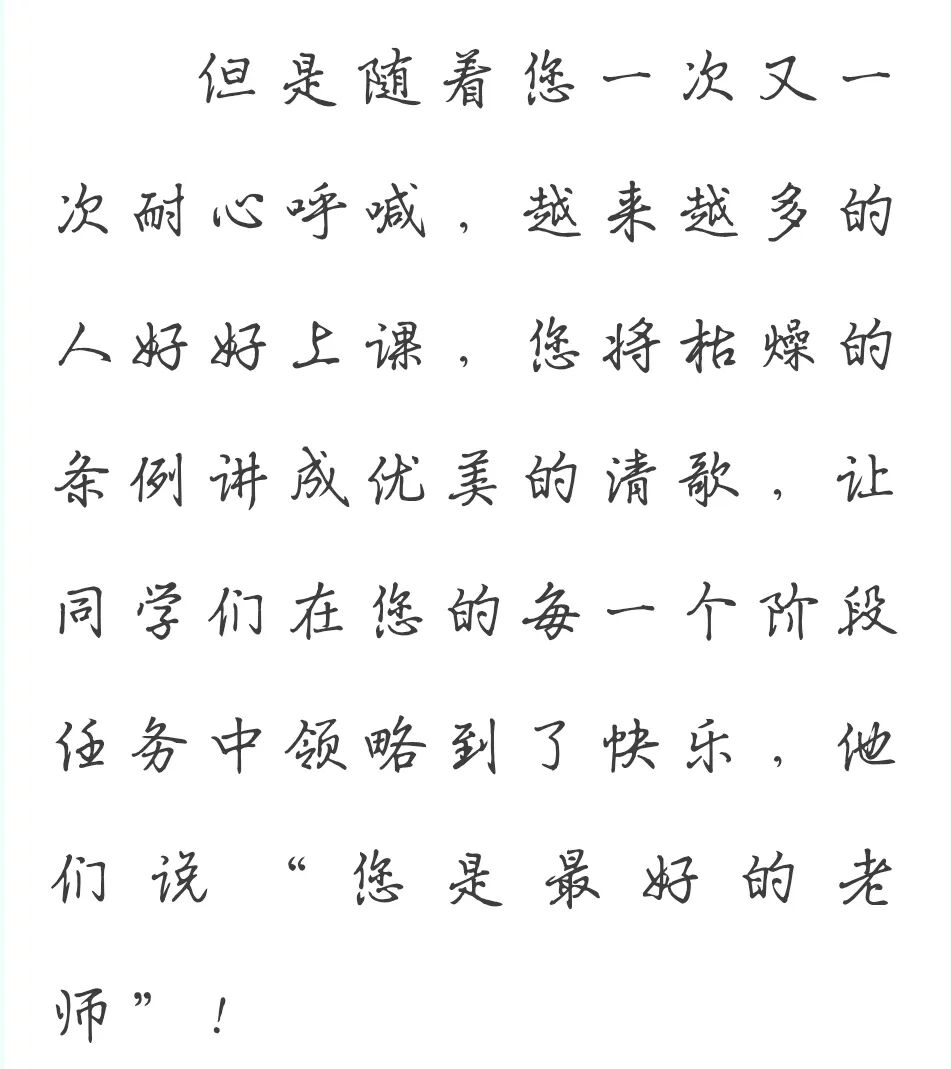 但是随着您一次又一
次耐心呼喊，越来越多的
人好好上课，您将枯燥的
条例讲成优美的清歌，让
同学们在您的每一个阶段
任务中领略到了快乐，他
们说“您是最好的老
师”！